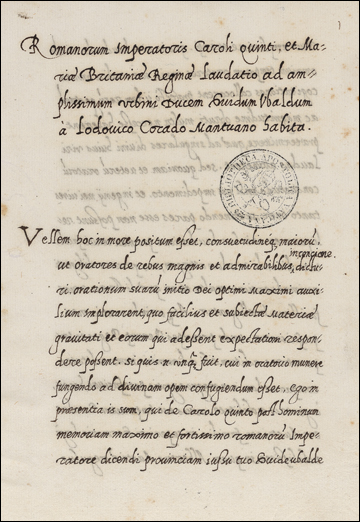 Romanorum Imperatoris Caroli Quinti, et Ma=
riæ Britaniæ Reginæ laudatio ad am=
plissimum Urbini Ducem Guidum Ubaldum
à Lodovico Corado Mantuano habita.
BIBLIOTECA APOSTOLICA
VATICANA
Vellem hoc in more positum esset, consuetudineq; maiorũ,
incensione.
ut oratores de rebus magnis et admirabilibus, dictu=
ri, orationum suarũ initio Dei optimi Maximi auxi=
lium implorarent, quo facilius et subiectæ Materiæ
gravitati et eorum qui adessent expectationi respon=
dere possent. si quis n. unq̃. fuit, cui in oratorio munere
fungendo ad divinam opem confugiendum esset, ego in
presentia is sum, qui de Carolo quinto post hominum
memoriam maximo et fortissimo romanorũ Impe=
ratore dicendi provinciam iussu tuo Guideubalde